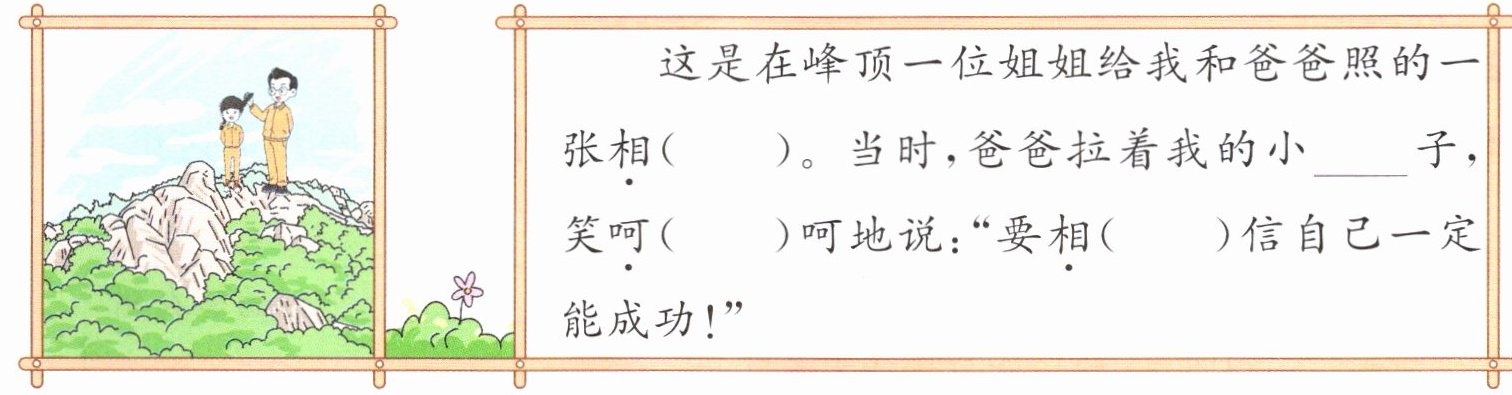 这是在峰顶一位姐姐给我和爸爸照的一
张相(  )。当时,爸爸拉着我的小____子,
笑呵(  )呵地说:“要相(  )信自己一定
能成功!”